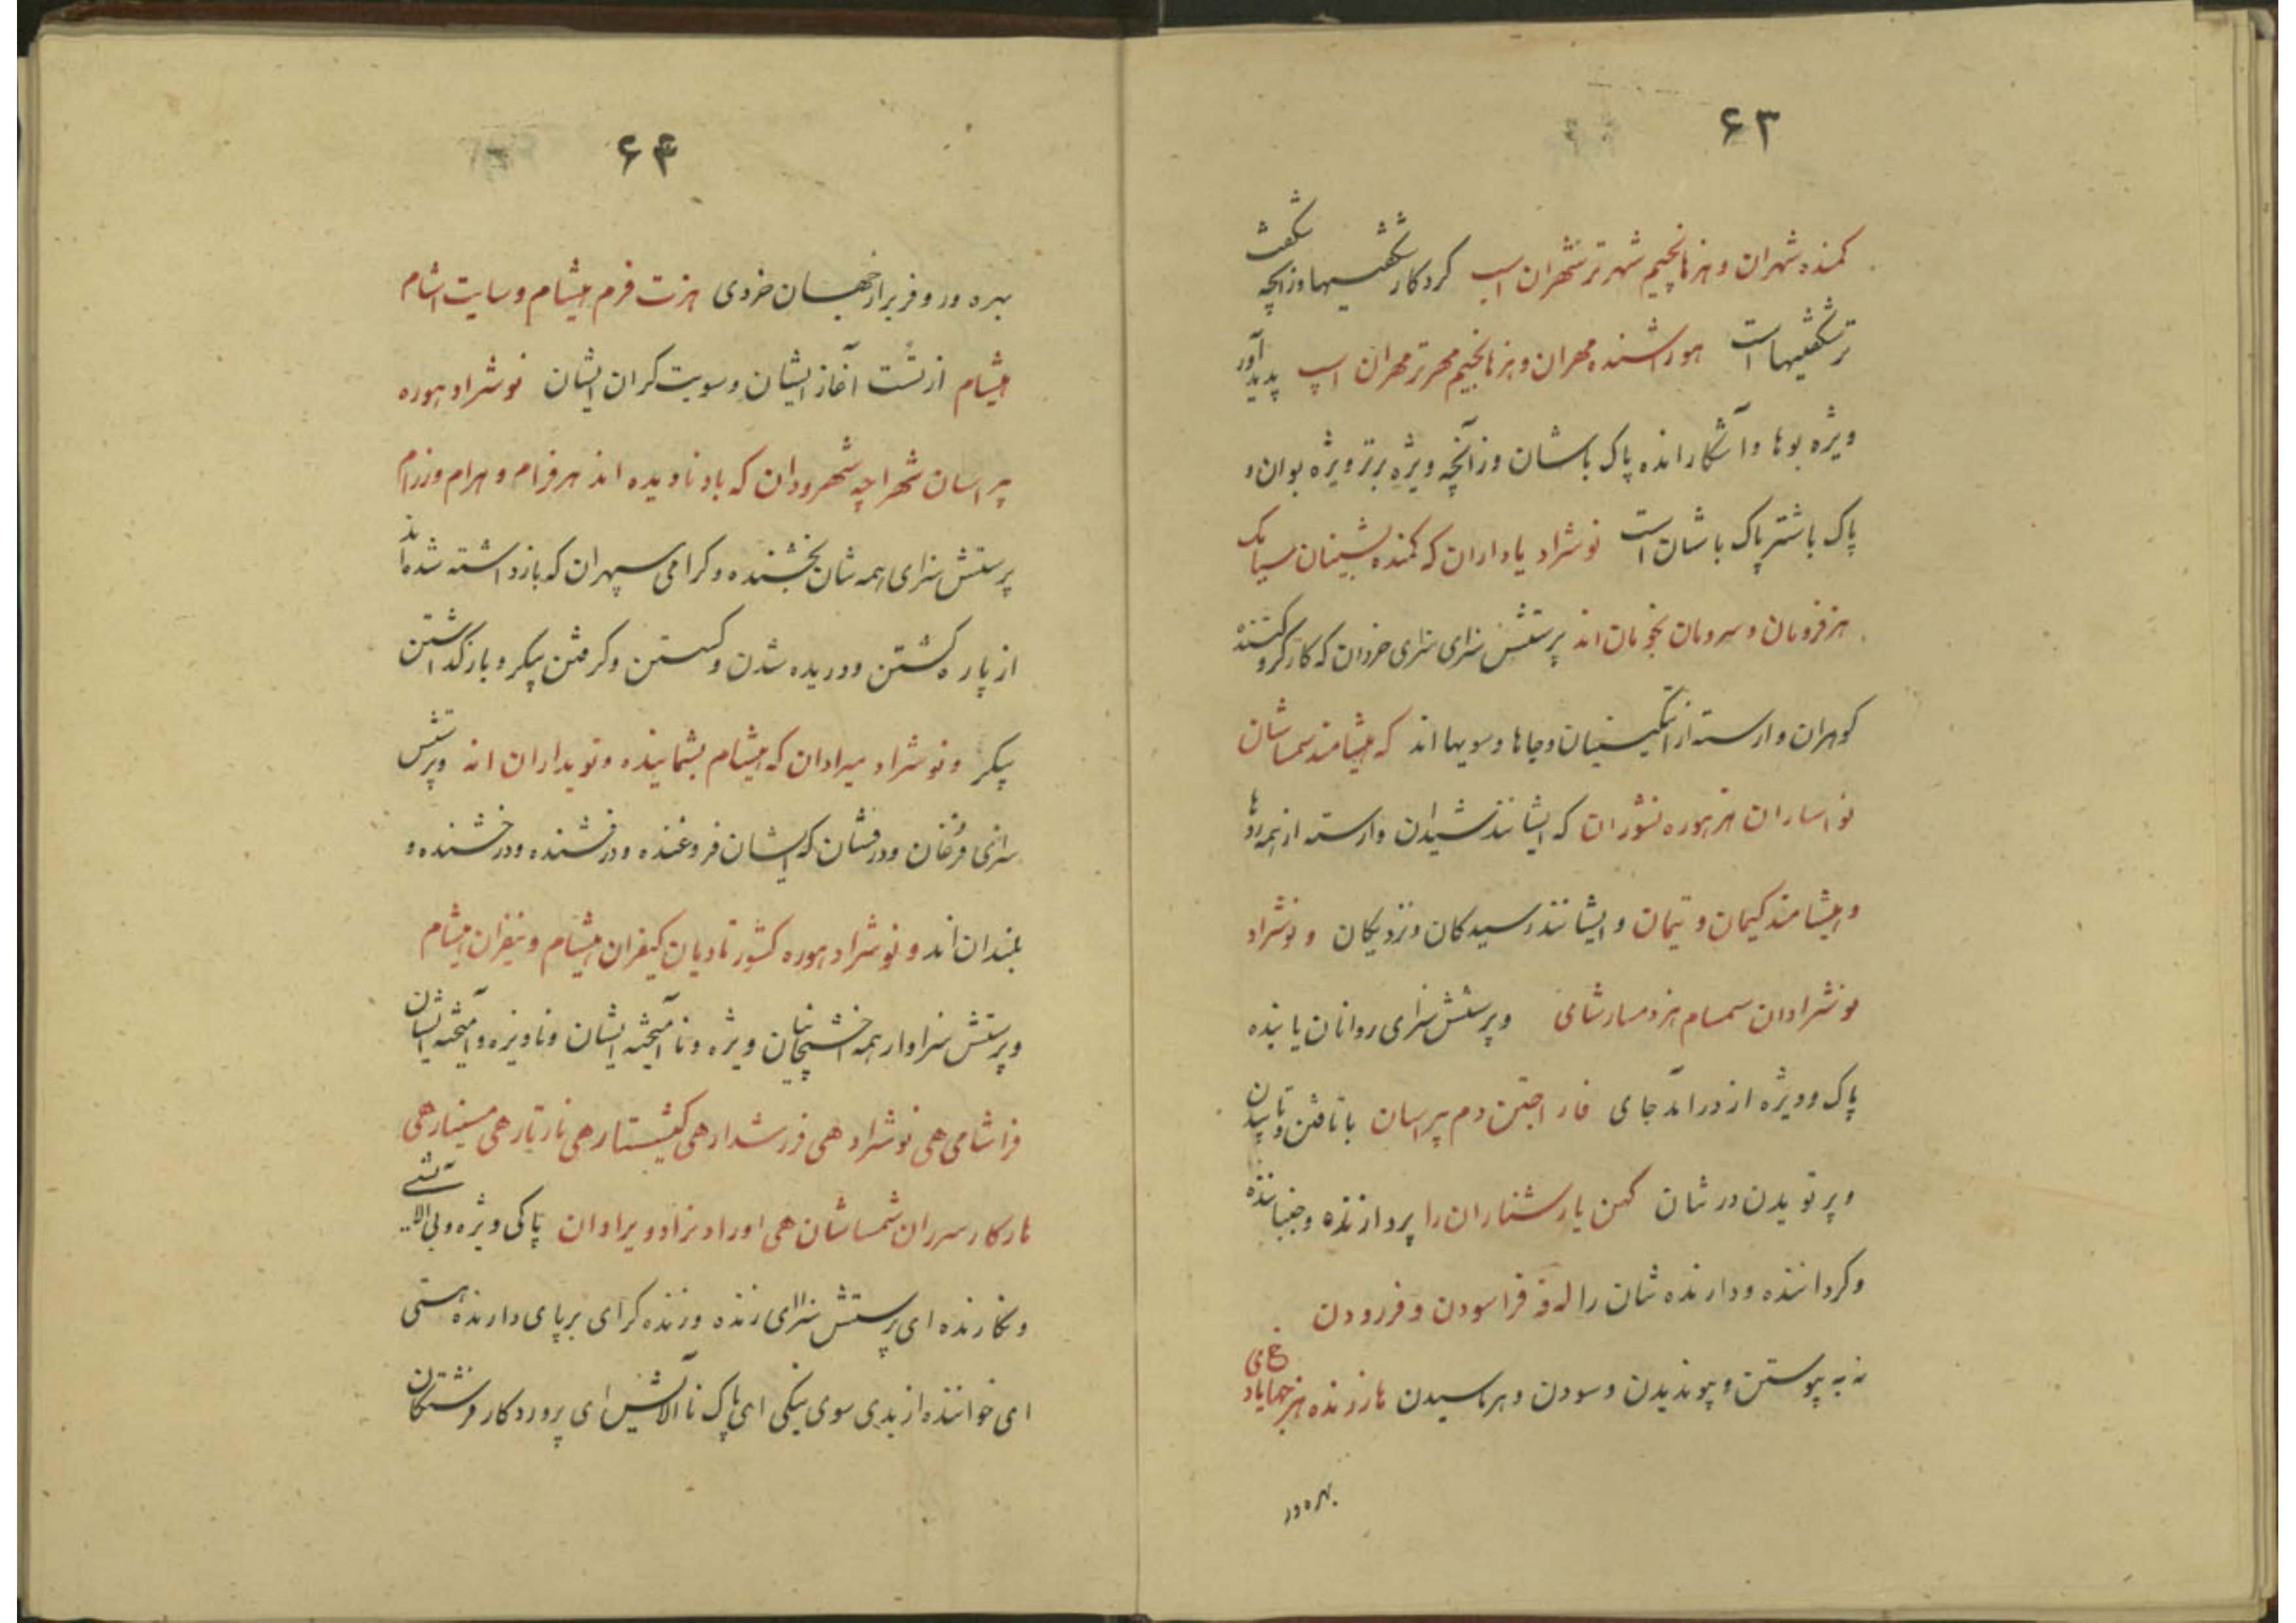 ۶۳
کمنده شهران و هزهانچیم شهرتر شهران اسپ کردکار شگفتیها وزانچه شگفت
تر شگفتیهاست هوراشنده مهران و هزهانجیم مهرتر مهران اسپ پدیدآور
ویژه بوها و آشکارانده پاک باشان وزآنچه ویژه برتر ویژه بوان و
پاک باشتر پاک باشان است نوشراد یاداران که کمنده
هزفرومان و سرومان اند پرستش سزای سزای خردان که کارکرو
کوهران وارسته از و جاها و سویها اند که هیشامند سماشان
نواساران هزهوره نشوران که ایشانند شیدان وارسته از همه روها
و هیشامند کیمان و تیمان و ایشانند رسیدکان و نزدیکان و نوشراد
نوشرادان سمسام هزدمسارشامی و پرستش سزای روانان یابنده
پاک و ویژه از درآمد جای فاراجتن دم پیراسان با تافتن و تابیدن
و پرتویدن در شان کهن یارشتاران را پردازنده و جنباننده
و کرداننده و دارنده شان را له فه فراسودن و فررودن
نه به پیوستن و پیوندیدن و سودن و هرماسیدن هارزنده هزجهاباد
بهره ور
۶۴
بهره ور و فربر از جهان خردی هزت فرم هیشام و سایت اشام
هیشام از تست آغاز ایشان و سویت کران ایشان نوشراد هوره
پیراسان شهراچه شهرودان که بادنادیده اند هرفرام و هرام وزرام
پرستش سزای همه شان بخشنده و کرامی سپهران که بازداشته شده اند
از پاره کشتن و دریده شدن و کستن و کرفتن پیکر و بازکداشتن
پیکر و نوشراد میرادان که هیشام بشمایندہ و تویداران اند و پرستش
سزای فرغان و درفشان که ایشان فروغنده و درفشنده و درخشنده و
بلندان اند و نوشراد هوره کشورتادیان کیفران هیشام و نیفران هیشام
و پرستش سزاوار همه آخشیجیان ویژه و ناآمیخته ایشان و ناویژه و آمیخته ایشان
فراشامی هی نوشراد هی فررشدار هی کمیشتار هی نارتار هی مسینار هی
هارکار سرران شمساشان هی اوراد نراد و یرادان پاکی ویژه و بی آلایشی
و نکارنده ای پرستش سزای زنده و زنده کرای برپای دارنده هستی
ای خواننده از بدی سوی نیکی ای پاک ناآلایش ای پروردکار فرشتکان